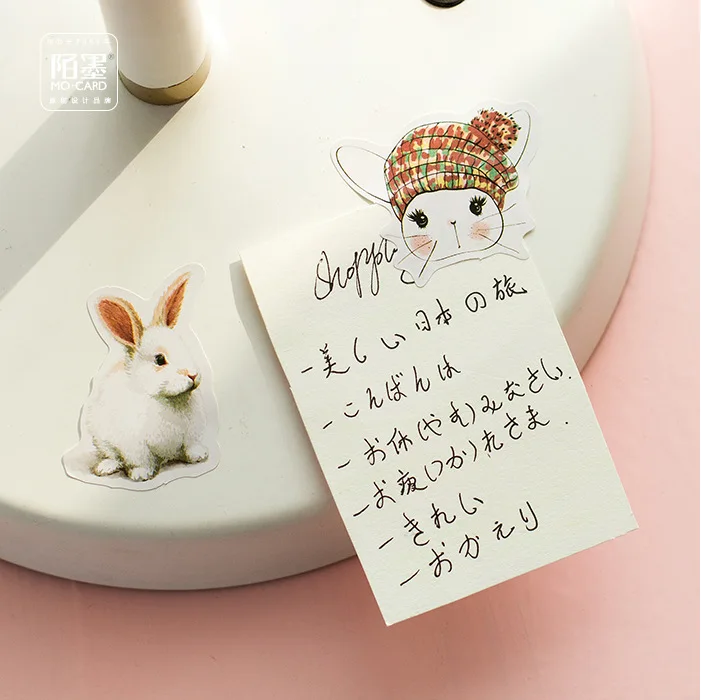 陌墨
MO·CARD
原创设计品牌
Shopping
-美しい日本の旅
-こんばんは
-お休(やす)みなさい.
-お疲(つか)れさま.
-きれい
-おかえり